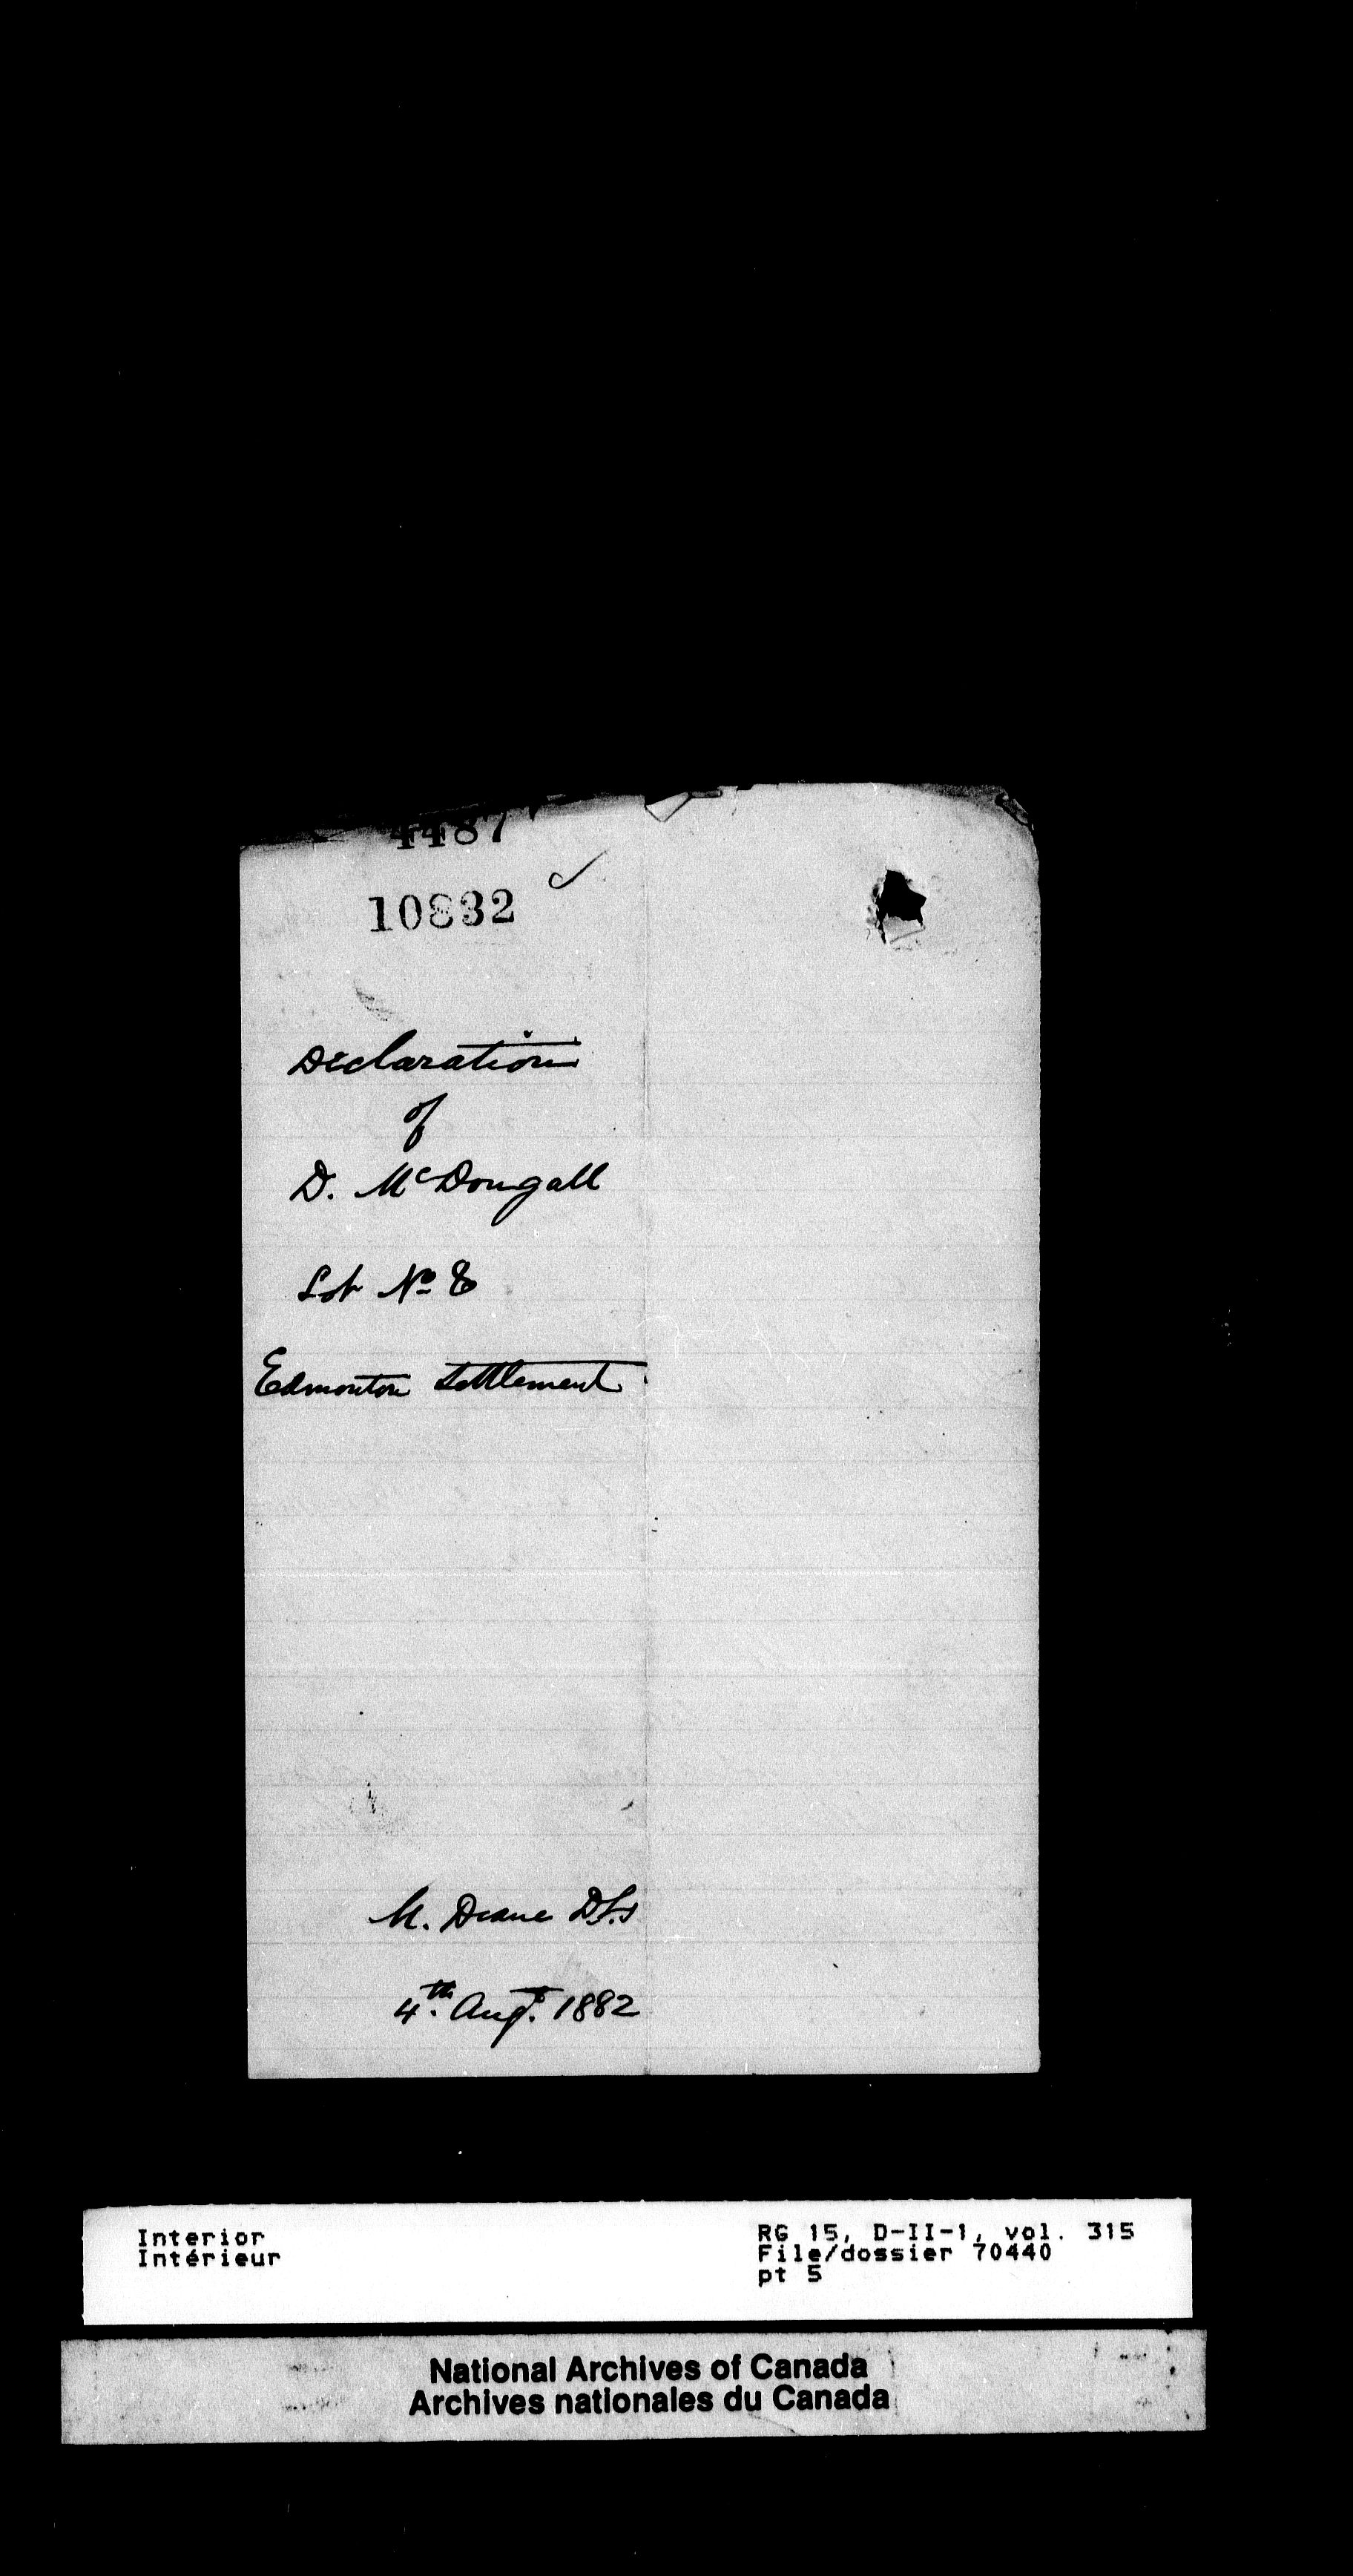 4487
10832
Declaration
of
D. McDougall
Lot No 8
Edmonton Settlement
M. Deane DLS
4th Augt. 1882
Interior
Intérieur
RG 15, D-II-1, vol. 315
File/dossier 70440
pt 5
National Archives of Canada
Archives nationales du Canada